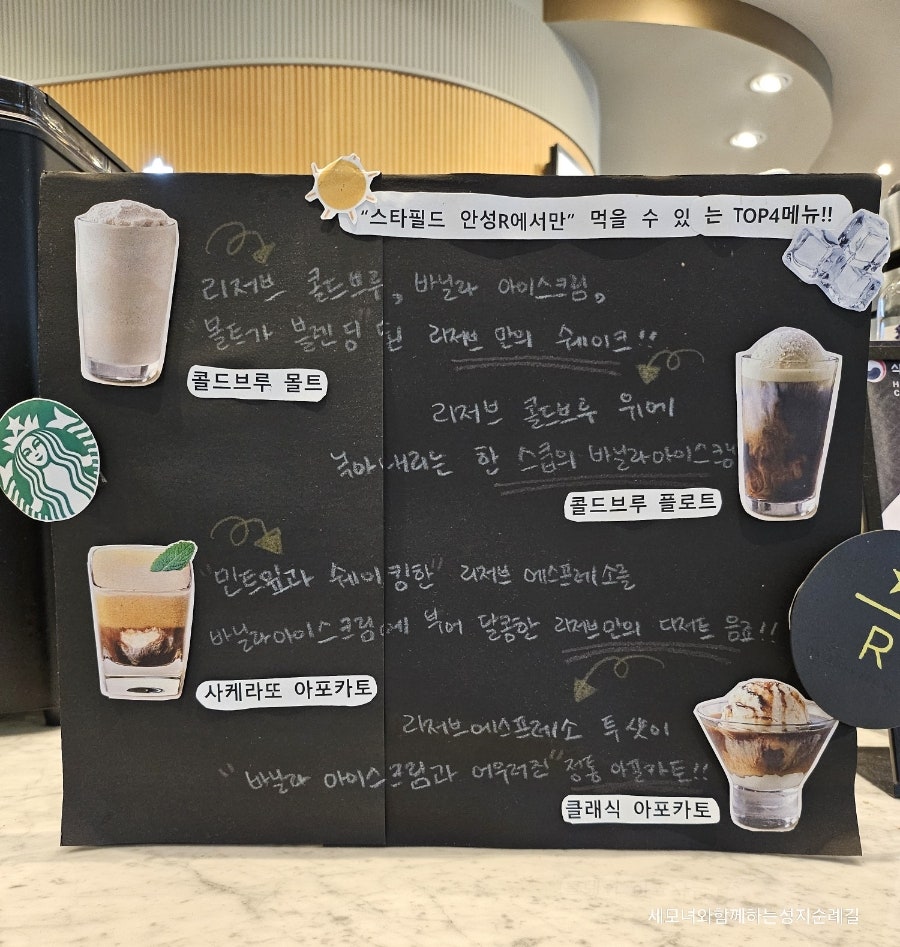 "스타필드 안성R에서만" 먹을 수 있는 TOP4메뉴!!
리저브 콜드브루, 바닐라 아이스크림,
"몰트가 블렌딩"된 리저브만의 쉐이크!!
콜드브루 몰트
리저브 콜드브루 위에
녹아내리는 한 스쿱의 바닐라아이스크림
콜드브루 플로트
"민트잎과 쉐이킹한" 리저브 에스프레소를
바닐라아이스크림에 부어 달콤한 리저브만의 디저트 음료!!
사케라또 아포카토
리저브에스프레소 투샷이
"바닐라 아이스크림과 어우러진" 정통 아포카토!!
클래식 아포카토
R
세모녀와함께하는성지순례길